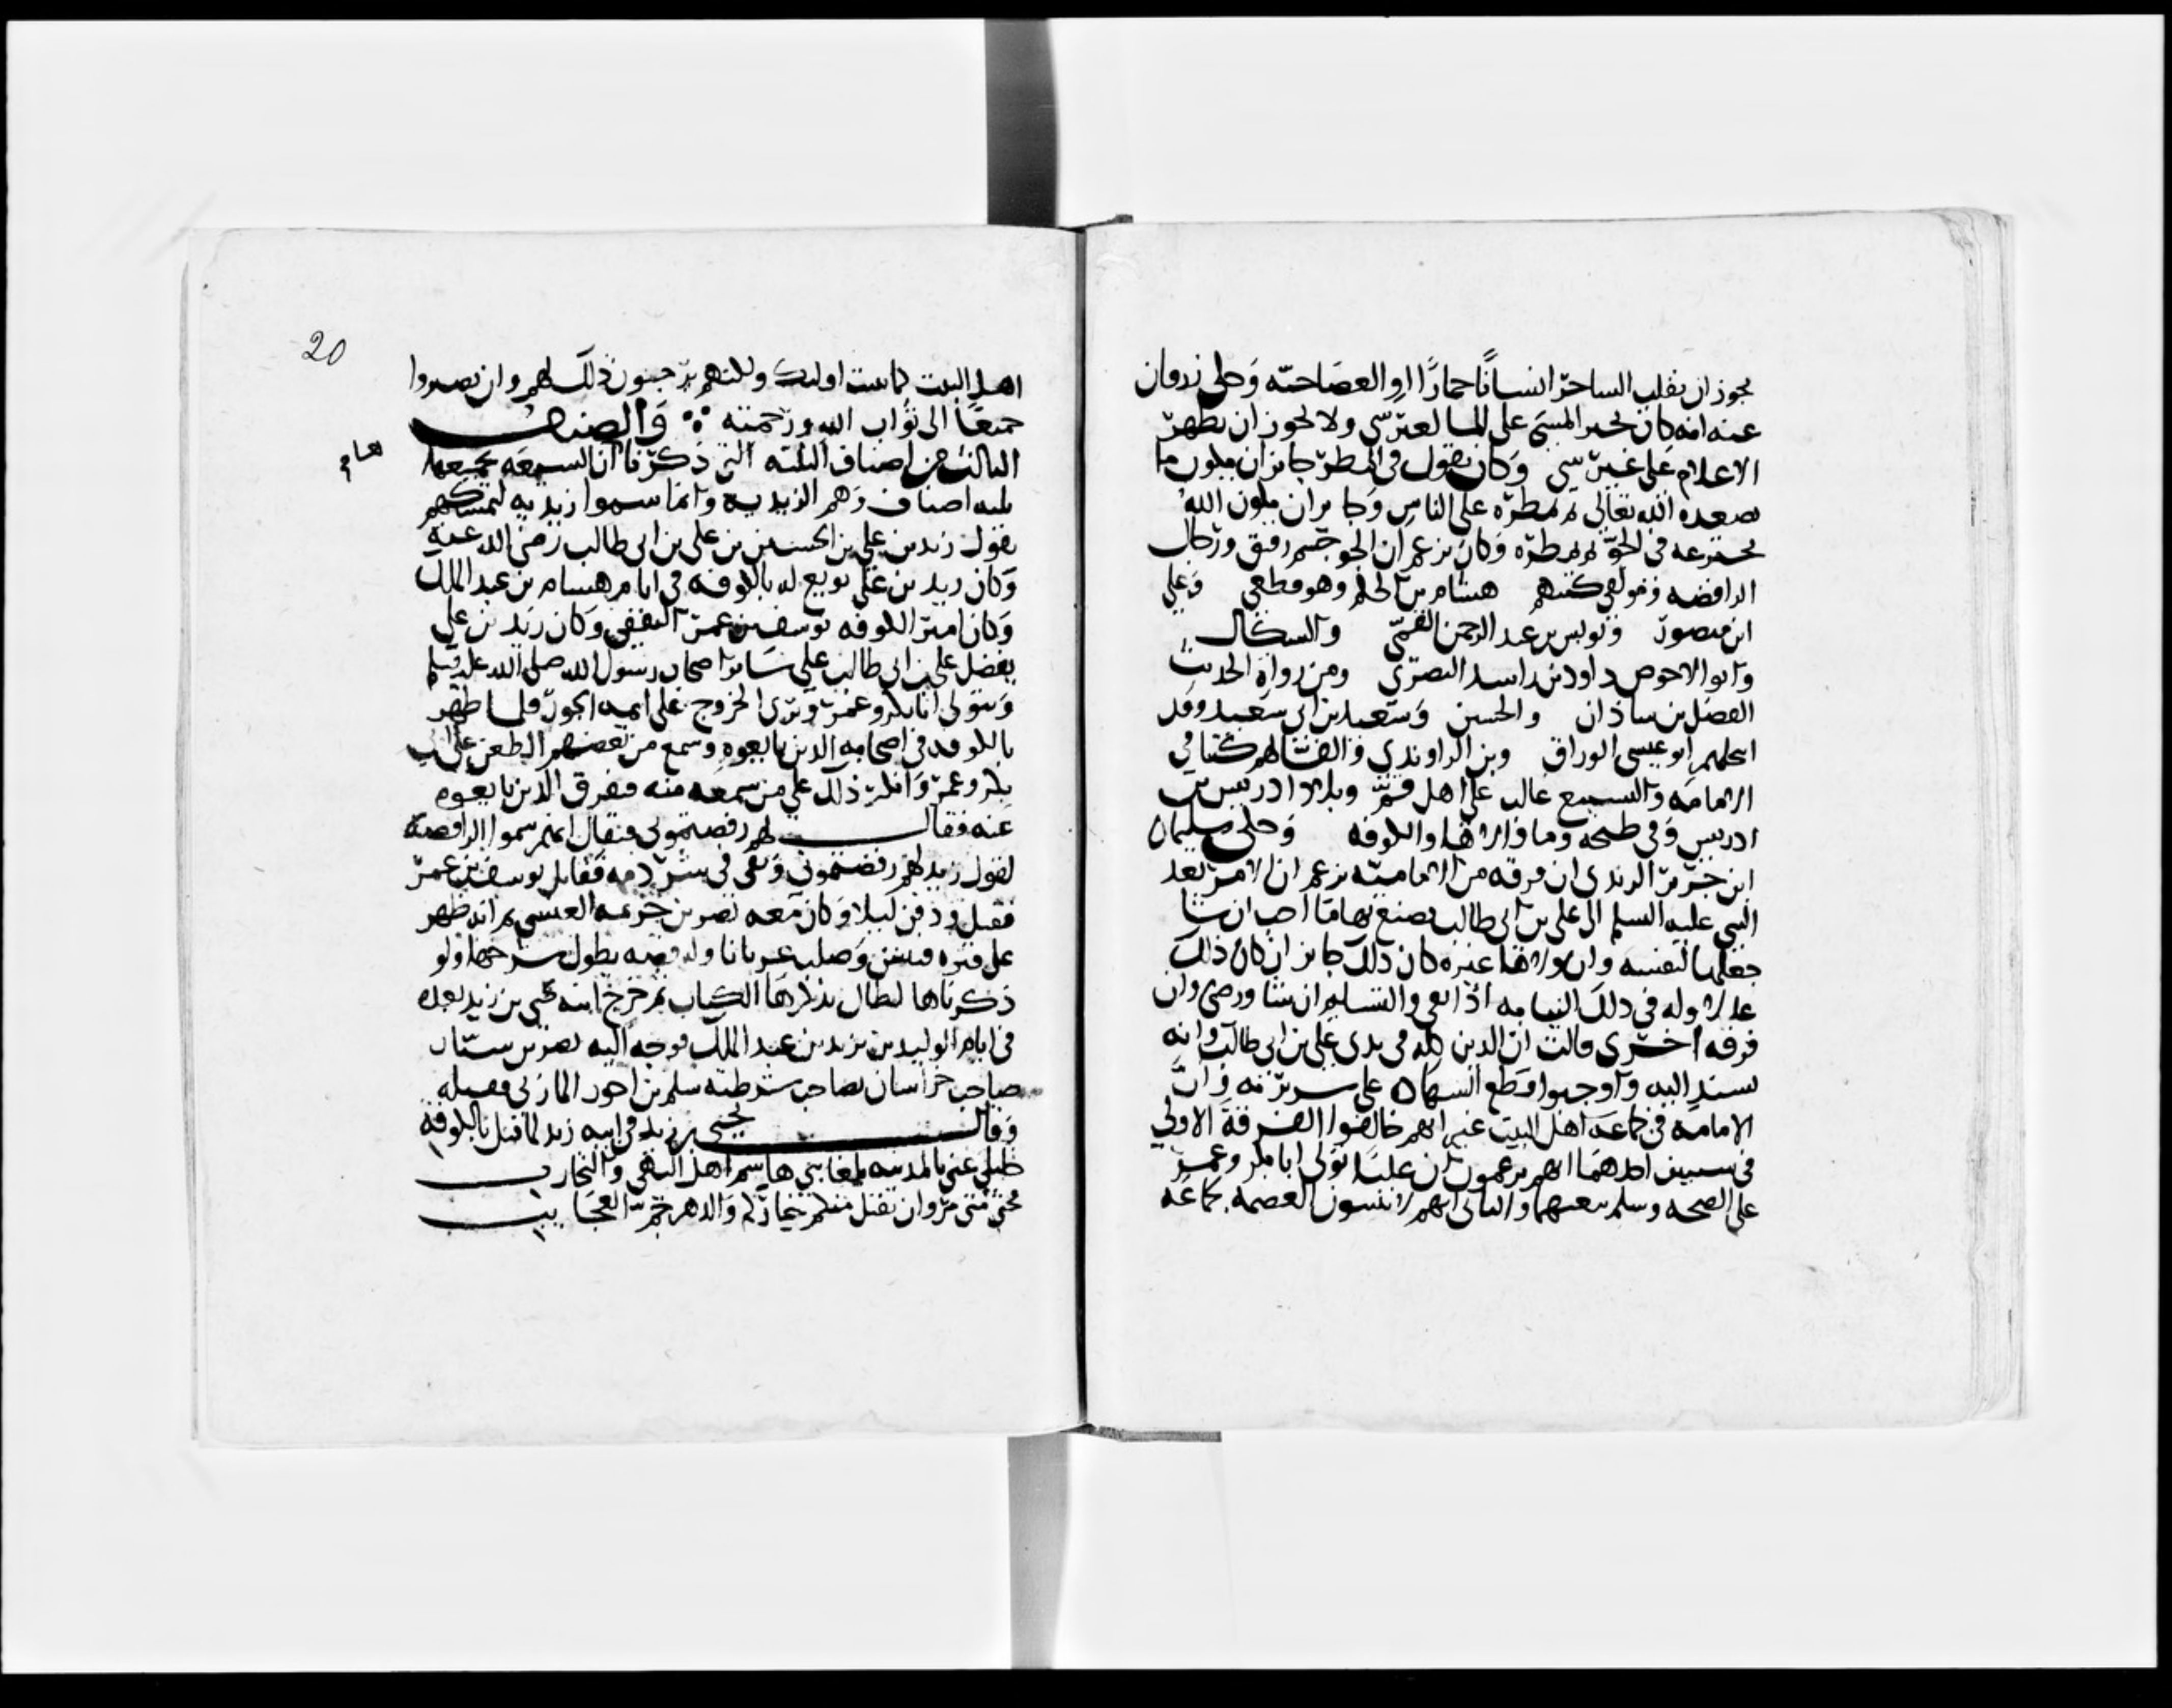 يجوز ان يقلب الساحر انسانًا حمارًا او العصا حيّه وحكى زرقان
عنه انه كان يجيز المشي على الما لغير نبي ولا يجوز ان يظهر
الاعلام على غير نبي وكان يقول في المطر جايز ان يكون ما
يصعده الله تعالى ثم يمطره على الناس وجايز ان يكون الله
يخترعه في الجوّ ثم يمطره وكان يزعم ان الجو جسم رقيق ورجال
الرافضه ومولفي كتبهم هشام بن الحكم وهو قطعي وعلي
ابن منصور ويونس بن عبد الرحمن القمّي والسكاك
وابو الاحوص داود بن راسد البصري ومن رواة الحديث
الفضل بن ساذان والحسين وسعيد بن ابي سعيد وقد
انتحلهم ابو عيسى الوراق وبن الراوندي والفا لهم كتبا في
الامامه والتشيع غالب على اهل قم وبلاد ادريس بن
ادريس وفي طنجه وما والاها والكوفه وحكى سليمان
ابن جرير الزيدي ان فرقه من الاماميه تزعم ان الامر بعد
النبي عليه السلم الى علي بن ابي طالب يصنع بها ما احب ان شا
جعلها لنفسه وان ولاها غيره كان ذلك جايز ان كان ذلك
عدلا وله في ذلك النيابه اذا نفى والتسليم ان شا ورضي وان
فرقه اخرى قالت ان الدين كله في يدي علي بن ابي طالب وانه
يسند اليه واوجبوا قطع الشهاده على سريرته وانّ
الامامه في جماعه اهل البيت غير انهم خالفوا الفرقة الاولى
في سيين احدهما انهم يزعمون ان عليًا تولى ابا بكر وعمر
على الصحه وسلم بيعتهما والثاني انهم لا يثبتون العصمه لجماعه
20
اهل البيت كما يثبت اوليك ولكنهم يرجون ذلك لهم وان يصيروا
جميعًا الى ثواب الله ورحمته ⁘ والصنف
الثالث من اصناف الثلثه التي ذكرنا ان الشيعه يجمعها
ثلثه اصناف وهم الزيديه وانما سموا زيديه لتمسكهم
بقول زيد بن علي بن الحسين بن علي بن ابي طالب رضي الله عنه
وكان زيد بن علي بويع له بالكوفه في ايام هشام بن عبد الملك
وكان امير الكوفه يوسف بن عمر الثقفي وكان زيد بن علي
يفضل علي بن ابي طالب على ساير اصحاب رسول الله صلى الله عليه وسلم
ويتولى ابا بكر وعمر ويرى الخروج على ايمه الجور فلما ظهر
بالكوفه في اصحابه الذين بايعوه وسمع من بعضهم الطعن على ابي
بكر وعمر وانكر ذلك على من سمعه منه فتفرق الذين بايعوه
عنه فقال لهم رفضتموني فيقال انهم سموا الرافضه
لقول زيد لهم رفضتموني وبقي في شرذمه فقاتل يوسف بن عمر
فقتل ودفن ليلا وكان معه نصر بن خزيمه العبسي ثم انه ظهر
على قبره فنبش وصلب عريانا وله قصه يطول شرحها ولو
ذكرناها لطال بذكرها الكتاب ثم خرج ابنه يحيى بن زيد بعده
في ايام الوليد بن يزيد بن عبد الملك فوجه اليه نصر بن سيّار
صاحب خراسان بصاحب شرطته سلم بن احوز المازني فقتله
وقال يحيى بن زيد في ابيه زيد لما قتل بالكوفة
خليلي عني بالمدينه بلغا بني هاشم اهل النهى والتجارب
فحتى متى مروان يقتل منكم خياركم والدهر جمّ العجايب